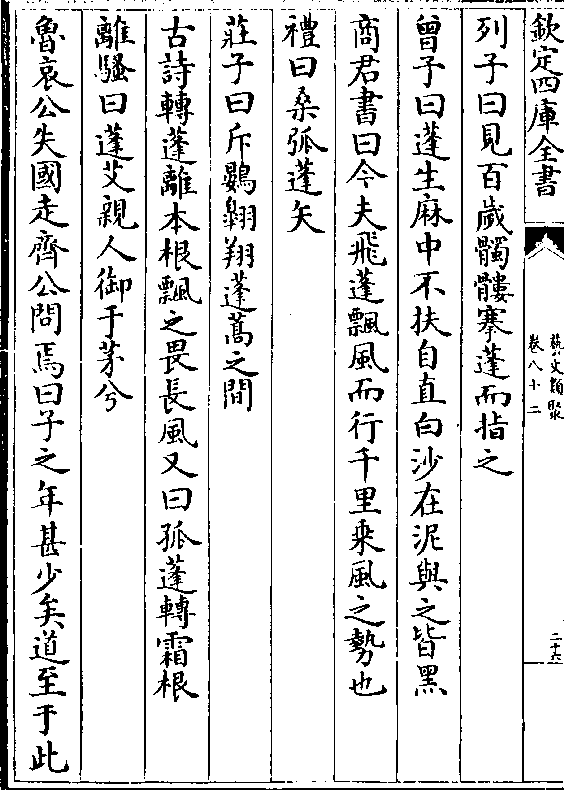 欽定四庫全書
藝文類聚
卷八十二
二十六
列子曰見百歲髑髏搴蓬而指之
曾子曰蓬生麻中不扶自直白沙在泥與之皆黑
商君書曰今夫飛蓬飄風而行千里乗風之勢也
禮曰桑弧蓬矢
莊子曰斥鷃翱翔蓬蒿之間
古詩轉蓬離本根飄之畏長風又曰孤蓬轉霜根
離騷曰蓬艾親人御于茅兮
魯哀公失國走齊公問焉曰子之年甚少矣道至于此